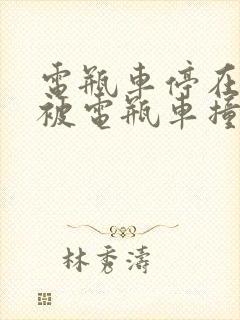 電瓶車停在
被電瓶車撞
林秀濤